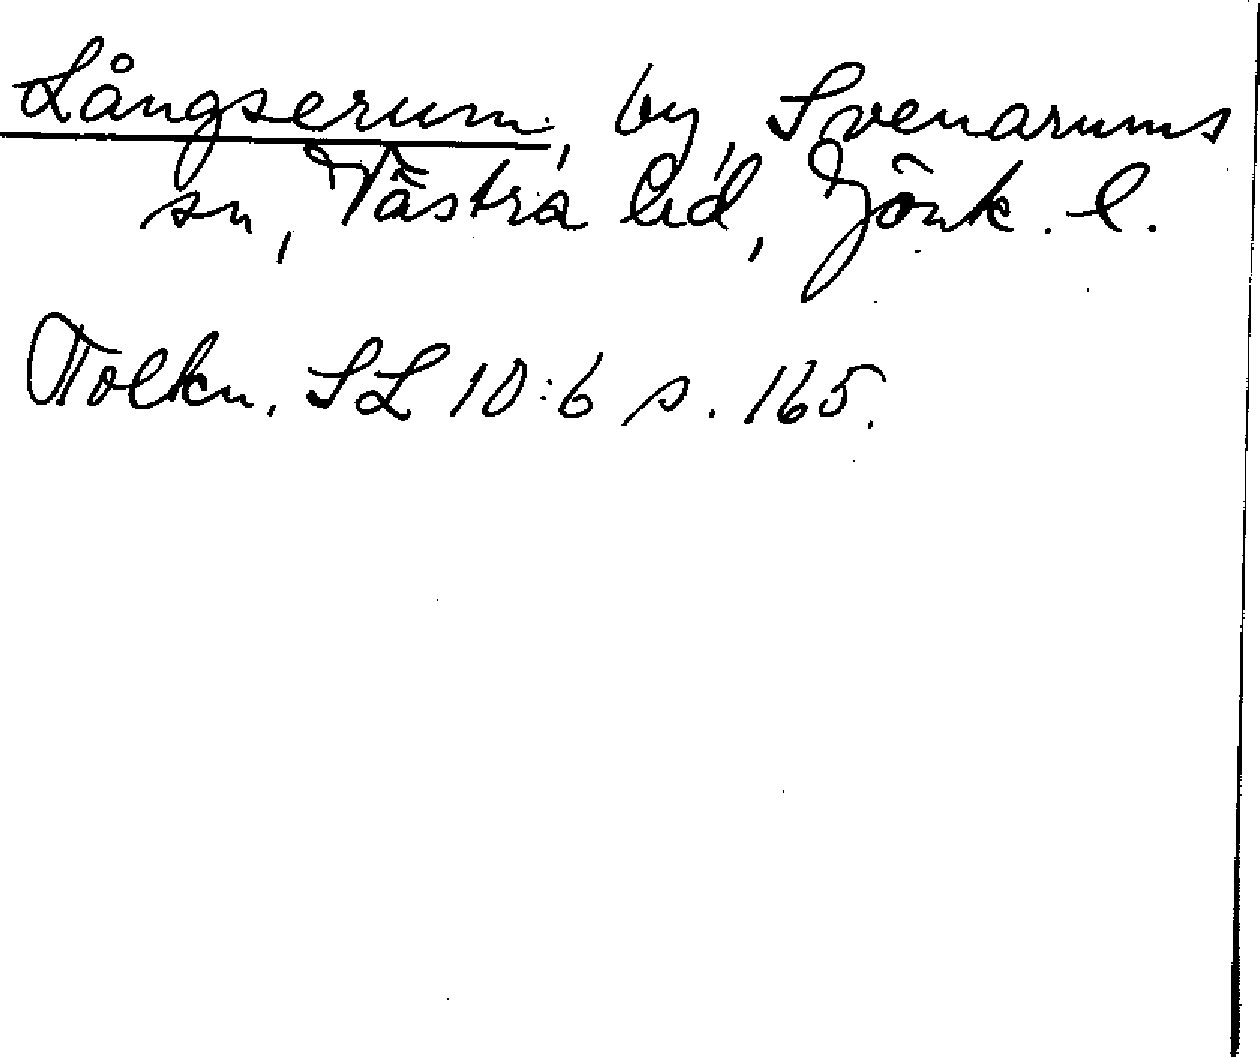 Långserum, by, Svenarums
sn, Västra hd, Jönk. l.
Tolkn. SL 10:6 s. 165.